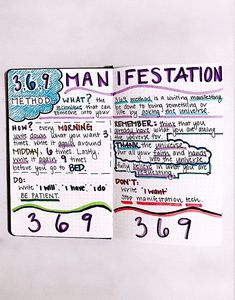 3.6.9
METHOD
MANIFESTATION
WHAT? the
technique that can
someone into
HOW? every MORNING
write down what you want 3
times, write it again around
MIDDAY, 6 times. Lastly
write it again 9 times
before you go to BED.
DO:
Write 'I will' 'I have' 'I do'
BE PATIENT.
3 6 9
369 method is a writing manifesting
be done to bring something or
life by asking the universe.
REMEMBER: think that you
already have what you are asking
the universe for.
THANK the universe,
put all your faith and hands
into the universe.
fully believe in what you are
requesting.
DON'T:
Write 'I want'
Stop manifestation tech.
3 6 9